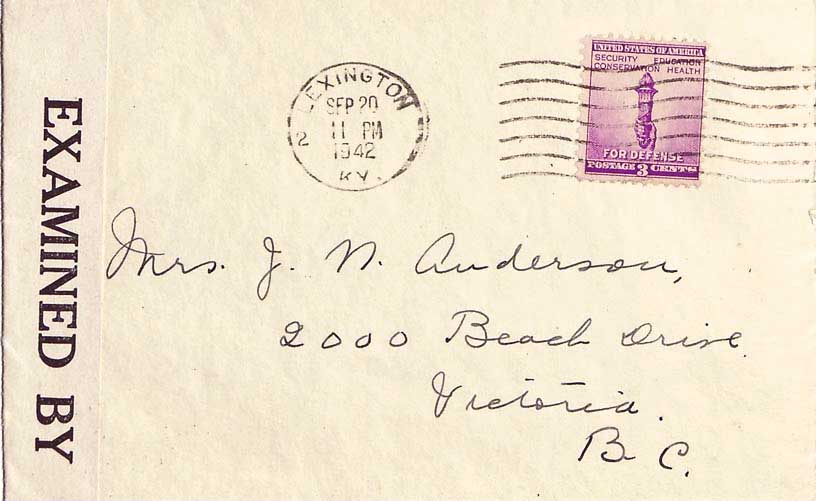 EXAMINED BY
LEXINGTON
SEP 20
11 PM
1942
2
KY.
UNITED STATES OF AMERICA
SECURITY EDUCATION
CONSERVATION HEALTH
FOR DEFENSE
POSTAGE 3 CENTS
Mrs. J. N. Anderson,
2000 Beach Drive
Victoria.
B. C.